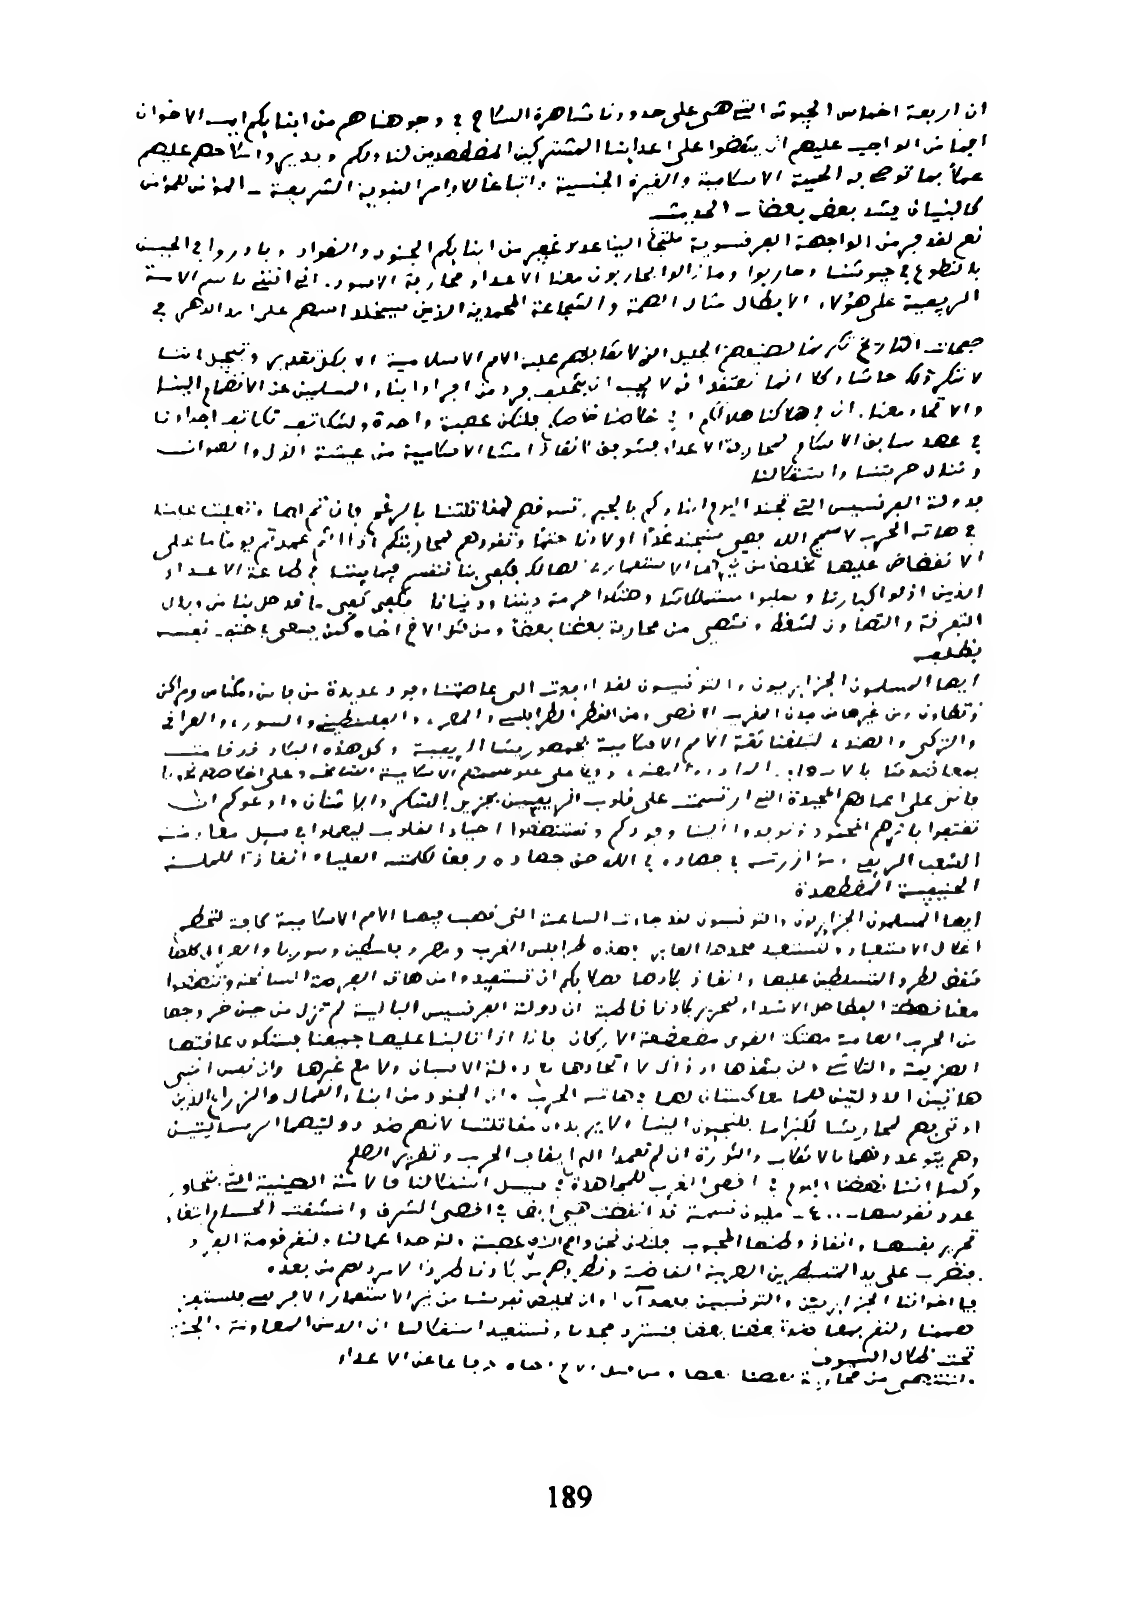 ان اربعة اخماس الجيوش التي هي على حدودنا شاهرة السلاح في وجوهنا هم من ابنايكم ايها الاخوان
اجمع من الواجب عليهم ان ينقضوا على اعداينا المشتركين المضطهدين لنا ولكم و سلاحهم عليهم
عملاً بما توحيه الحمية الاسلامية والغيرة الجنسية واتباعا للاوامر النبوية الشريعة – المؤمن للمؤمن
كالبنيان يشد بعضه بعضا – الحديث
نعم لقد فر من الواجهة الفرنسوية ملتجأ الينا عدد غفير من ابنايكم الجنود والقواد وبادروا في الحين
بالتطوع في جيوشنا وحاربوا وما زالوا يحاربون معنا الاعداء محاربة الاسود. اني اثني باسم الامة
الريفية على هؤلاء الابطال مثال الهمة والشجاعة المحمدية الذين سيخلد اسمهم على امد الدهر في
صفحات التاريخ تكريما لصنيعهم الجميل الذي لا تقابلهم عليه الامم الاسلامية الا بكل تقدير وتبجيل اننا
لا ننكر ذلك حاشا وكلا انما نعتقد انه لا يجب ان يتخلف فرد من افراد ابناء المسلمين عن الانضمام الينا
والاتحاد معنا. ان في هلاكنا هلاككم وفي خلاصنا خلاصكم فلنكن عصبة واحدة ولنتكاتف تكاتف اجدادنا
في عهد سابق الاسلام لمحاربة الاعداء انقاذ امتنا الاسلامية من عيشة الذل والهوان
وننال حريتنا واستقلالنا
فدولة الفرنسيس التي تجند اليوم ابناءكم بالجبر وتسوقهم لمقاتلتنا بالرغم فان تم لها وتغلبت علينا
في هاته الحرب لا سمح الله فهي ستجند غدا اولادنا حتما وتقودهم لمحاربتكم اذا انتم عمدتم يوما ما على
الانقضاض عليها تخلصا من الاستعمارية لهالك فكفى بنا تنقسم فيما بيننا في طماعة الاعداء
الذين اذلوا كبارنا وسلبوا ممتلكاتنا وهتكوا حرمة ديننا ودنيانا فكفى كفى ما قد حل بنا من وبال
التفرقة والتهاون لنتعظ وننتهي من محاربة بعضنا بعضا ومن قتل الاخ اخاه كمن يسعى في حتف نفسه
بظلفه
ايها المسلمون الجزايريون والتونسيون لقد وفدت الى عاصمتنا وفود عديدة من فاس ومكناس ومراكش
وتطاون ومن غيرها من مدن المغرب الاقصى ومن القطر الطرابلسي والمصري والفلسطيني والسوري والعراقي
والتركي والهندي لتبلغنا ثقة الامم الاسلامية بجمهوريتنا الريفية وكل هذه البلاد قد قامت
فاثني على اعمالهم المجيدة التي ارتسمت على قلوب الريفيين بجزيل الشكر والامتنان وادعوكم ان
تقتفوا باثرهم المحمود وتوفدوا الينا وفودكم وتستنهضوا احياء القلوب ليعملوا في سبيل معاونة
الشعب الريفي ومؤازرته في جهاده في الله حق جهاده رفعا لكلمته العلياء انقاذا للملة
الحنيفية المضطهدة
ايها المسلمون الجزايريون والتونسيون لقد جاءت الساعة التي تهب فيها الامم الاسلامية كافة لتحطم
اغلال الاستعباد ولتستعيد مجدها الغابر فهذه طرابلس الغرب ومصر وفلسطين وسوريا والعراق كلها
تنهض لطرد المتسلطين عليها وانقاذ بلادها فما بكم ان تستفيدوا من هاته الفرصة السانحة وتنهضوا
معنا نهضة الاشداء لتحرير بلادنا قاطبة ان دولة الفرنسيس البالية لم تزل من حين خروجها
من الحرب العامة منهكة القوى متضعضعة الاركان فاذا اذا تالبنا عليها جميعنا فستكون عاقبتها
الهزيمة والتلاشي ولن ينقذها اذ ذاك لا اتحادها مع دولة الاسبان ولا مع غيرها وان نفس شعبي
هاتين الدولتين لهما معاكستان لهما في هاته الحرب وان الجنود من ابناء العمال والزراع الذين
اوتي بهم لمحاربتنا لكثرا ما يلتجيون الينا لا يريدون مقاتلتنا لانهم ضد دولتيهما الرسماليتين
وهم يتوعدونهما بالانقلاب والثورة ان لم تعمدا الى ايقاف الحرب وتقرير الصلح
وكما اننا نهضنا اليوم في اقصى الغرب للمجاهدة في سبيل استقلالنا فالامة الصينية التي يتجاوز
عدد نفوسها – ٤٠٠ – مليون نسمة قد انهضت هي ايضا في اقصى الشرق وامتشقت الحسام ابتغاء
تحرير نفسها وانقاذ وطنها المحبوب فلنكن نحن واهم الذي عصبة ولنوحد اعمالنا ولنقم قومة الفرد
فنضرب على يد المتسيطرين الضربة القاضية ونطردهم من بلادنا طردا لا مرد لهم من بعده
فيا اخواننا الجزايريين والتونسيين لقد آن اوان تخليص نفوسنا من نير الاستعمار الافرنسي فلنستفز
هممنا ولنقم معا بعضنا بعضا فنسترد مجدنا ونستعيد استقلالنا ان الامم المتعاونة والجنة
تحت ظلال السيوف
ولننته من محاربة بعضنا بعضا ومن قتل الاخ اخاه دفاعا عن الاعداء
189